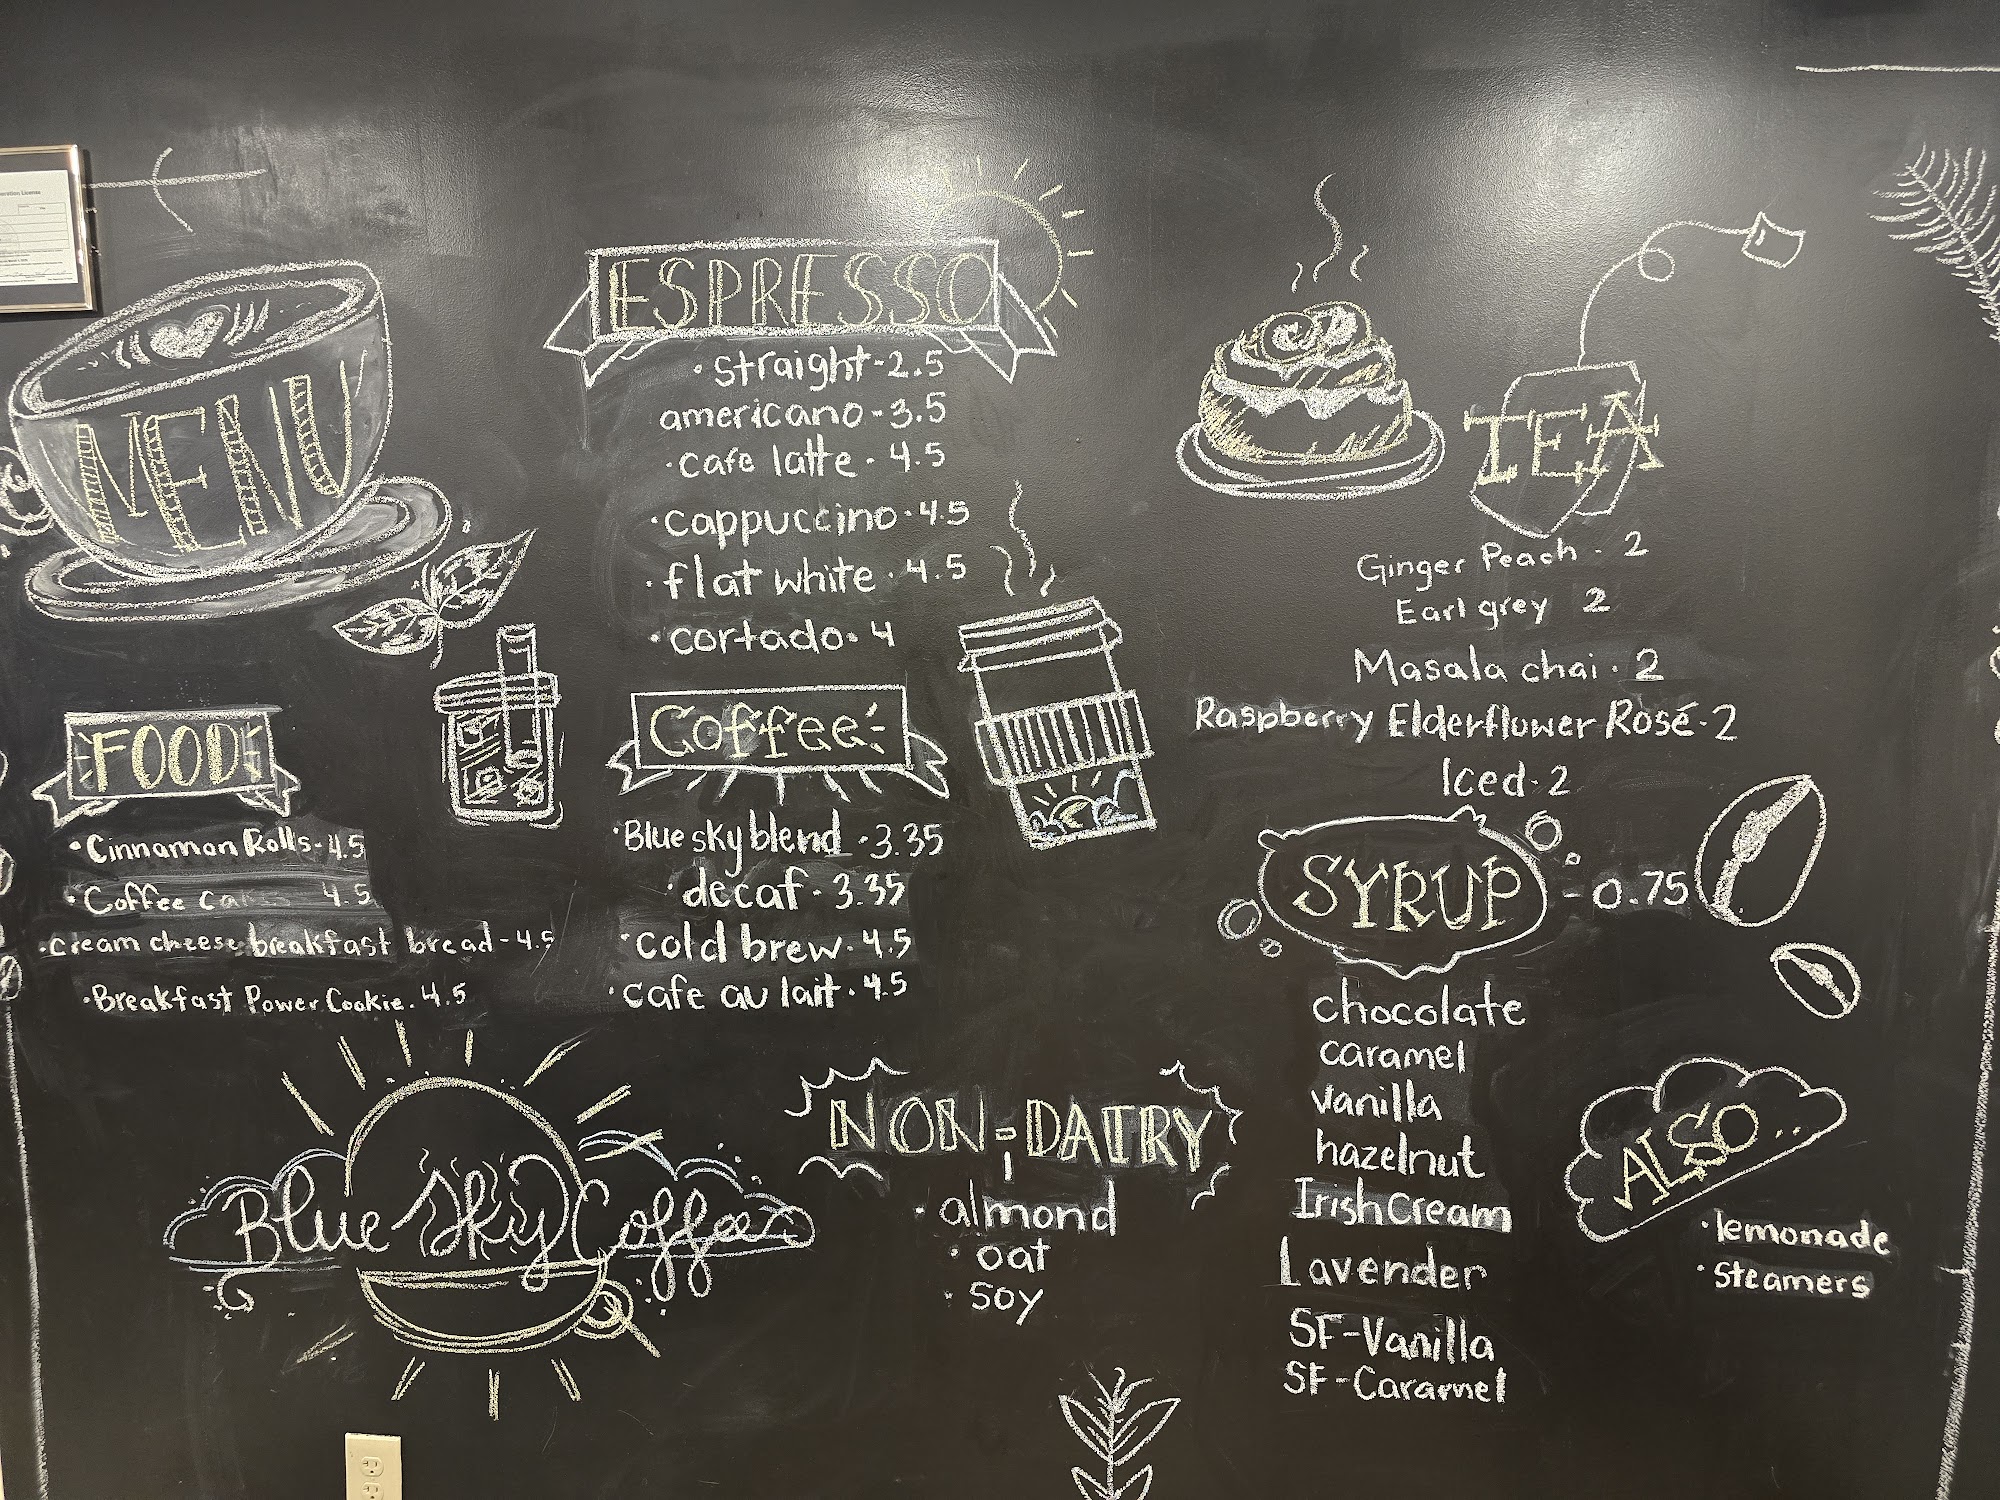 MENU
ESPRESSO
• straight - 2.5
americano - 3.5
• cafe latte - 4.5
• cappuccino • 4.5
• flat white • 4.5
• cortado • 4
Coffee
• Blue sky blend • 3.35
• decaf - 3.35
• cold brew • 4.5
• cafe au lait • 4.5
FOOD
• Cinnamon Rolls - 4.5
• Coffee 4.5
• cream cheese breakfast bread - 4.5
• Breakfast Power Cookie • 4.5
Blue Sky Coffee
NON-DAIRY
• almond
• oat
• soy
TEA
Ginger Peach - 2
Earl grey 2
Masala chai • 2
Raspberry Elderflower Rosé - 2
Iced - 2
SYRUP - 0.75
chocolate
caramel
vanilla
hazelnut
Irish Cream
Lavender
SF-Vanilla
SF-Caramel
ALSO...
• lemonade
• steamers